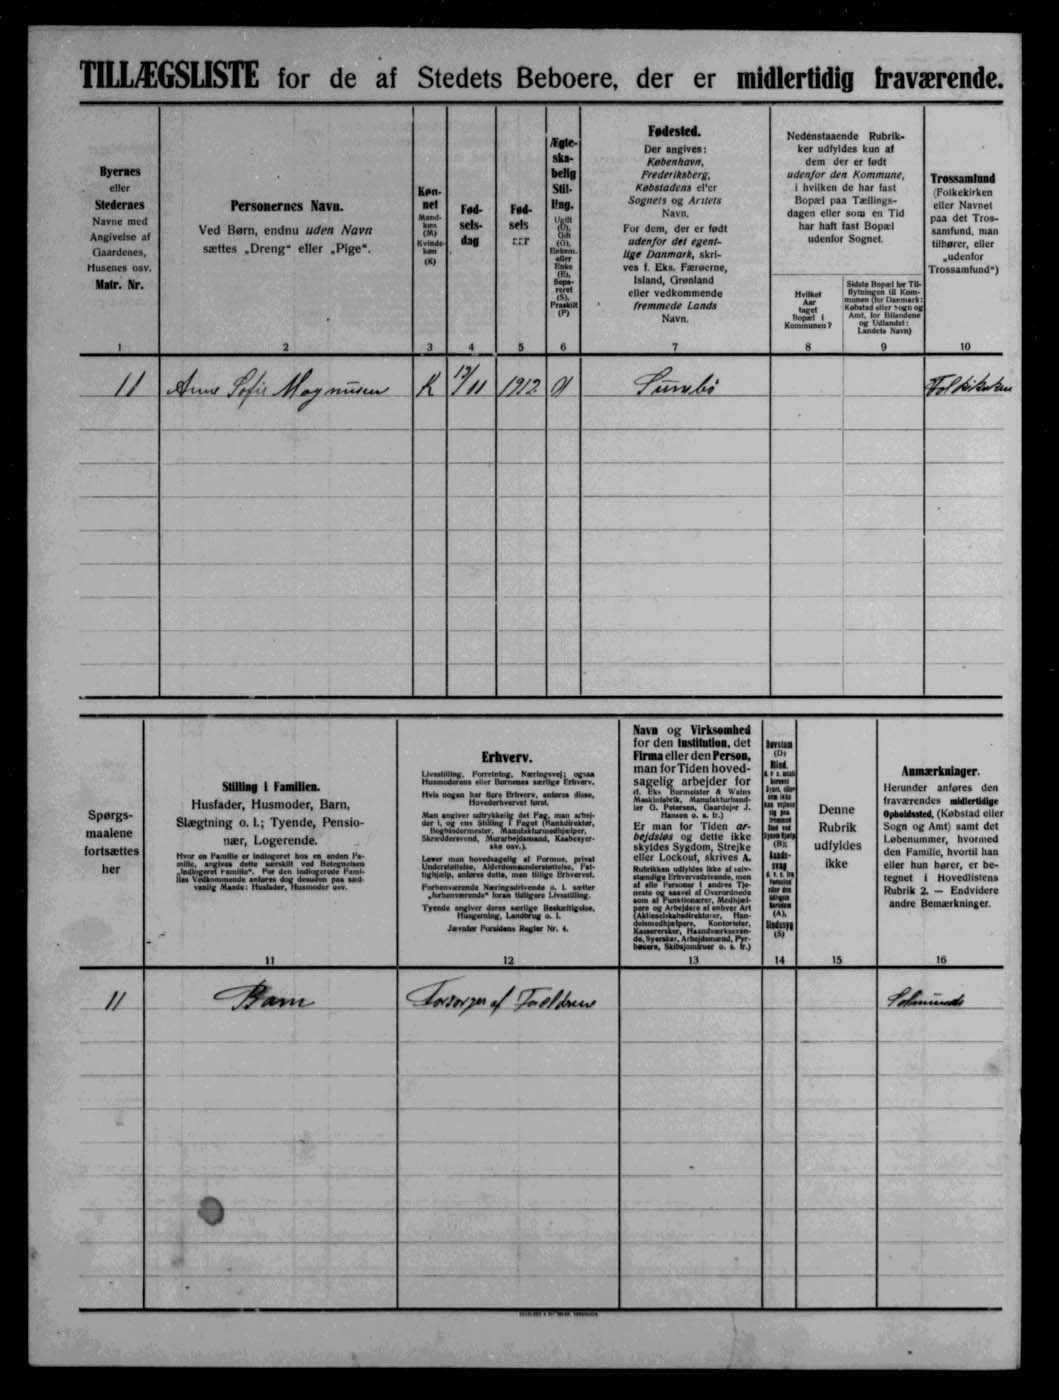 TILLÆGSLISTE for de af Stedets Beboere, der er midlertidig fraværende.
Byernes
eller
Stedernes
Navne med
Angivelse af
Gaardenes,
Husenes osv.
Matr. Nr.
Personernes Navn.
Ved Børn, endnu uden Navn
sættes „Dreng“ eller „Pige“.
Køn-
net
Mand-
køn
(M)
Kvinde-
køn
(K)
Fød-
sels-
dag
Fød-
sels
aar
Ægte-
ska-
belig
Stil-
ling.
Ugift
(U),
Gift
(G),
Enkem.
eller
Enke
(E),
Sepa-
reret
(S),
Fraskilt
(F)
Fødested.
Der angives:
København,
Frederiksberg,
Købstadens eller
Sognets og Amtets
Navn.
For dem, der er født
udenfor det egent-
lige Danmark, skri-
ves f. Eks. Færøerne,
Island, Grønland
eller vedkommende
fremmede Lands
Navn.
Nedenstaaende Rubrik-
ker udfyldes kun af
dem der er født
udenfor den Kommune,
i hvilken de har fast
Bopæl paa Tællings-
dagen eller som en Tid
har haft fast Bopæl
udenfor Sognet.
Hvilket
Aar
taget
Bopæl i
Kommunen?
Sidste Bopæl før Til-
flytningen til Kom-
munen (for Danmark:
Købstad eller Sogn og
Amt, for Bilandene
og Udlandet:
Landets Navn)
Trossamfund
(Folkekirken
eller Navnet
paa det Tros-
samfund, man
tilhører, eller
„udenfor
Trossamfund“)
1 2 3 4 5 6 7 8 9 10
11 Anne Sofie Magnusen K 12/11 1912 U Sumbø Folkekirken
Spørgs-
maalene
fortsættes
her
Stilling i Familien.
Husfader, Husmoder, Barn,
Slægtning o. l.; Tyende, Pensio-
nær, Logerende.
Hvor en Familie er indlogeret hos en anden Fa-
milie, angives dette særskilt ved Betegnelsen
„indlogeret Familie“. For den indlogerede Fami-
lies Vedkommende anføres dog desuden paa sæd-
vanlig Maade: Husfader, Husmoder osv.
Erhverv.
Livsstilling, Forretning, Næringsvej; ogsaa
Husmoderens eller Børnenes særlige Erhverv.
Hvis nogen har flere Erhverv, anføres disse,
Hovederhvervet først.
Man angiver udtrykkelig det Fag, man arbej-
der i, og ens Stilling i Faget (Bankdirektør,
Bogbindermester, Manufakturmedhjælper,
Skræddersvend, Murarbejdsmand, Kaabesyer-
ske osv.).
Lever man hovedsagelig af Formue, privat
Understøttelse, Alderdomsunderstøttelse, Fat-
tighjælp, anføres dette, men tillige Erhvervet.
Forhenværende Næringsdrivende o. l. sætter
„forhenværende“ foran tidligere Livsstilling.
Tyende angiver deres særlige Beskæftigelse,
Husgerning, Landbrug o. l.
Jævnfør Forsidens Regler Nr. 4.
Navn og Virksomhed
for den Institution, det
Firma eller den Person,
man for Tiden hoved-
sagelig arbejder for
(f. Eks Burmeister & Wains
Maskinfabrik, Manufakturhand-
ler G. Petersen, Gaardejer J.
Hansen o. s. fr.)
Er man for Tiden ar-
bejdsløs og dette ikke
skyldes Sygdom, Strejke
eller Lockout, skrives A.
Rubrikken udfyldes ikke af selv-
stændige Erhvervsdrivende, men
af alle Personer i andres Tje-
neste og saavel af Overordnede
som af Funktionærer, Medhjæl-
pere og Arbejdere af enhver Art
(Aktieselskabsdirektører, Han-
delsmedhjælpere, Kontorister,
Kassererske, Haandværkssven-
de, Syersker, Arbejdsmænd, Pyr-
bødere, Skibsjomfruer o. s. fr.)
Døvstum
(D)
Blind,
(B);
Aands-
svag
(A),
Sindssyg
(S)
Denne
Rubrik
udfyldes
ikke
Anmærkninger.
Herunder anføres den
fraværendes midlertidige
Opholdssted, (Købstad eller
Sogn og Amt) samt det
Løbenummer, hvormed
den Familie, hvortil han
eller hun hører, er be-
tegnet i Hovedlistens
Rubrik 2. — Endvidere
andre Bemærkninger.
11 12 13 14 15 16
11 Barn Forsørges af Forældrene